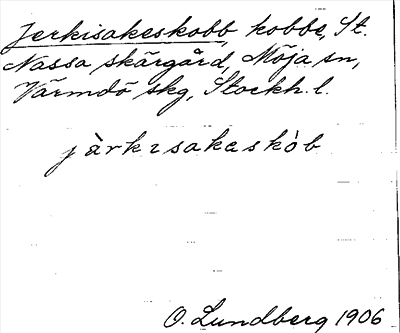 Jerkisakeskobb, kobbe, St.
Nassa skärgård, Möja sn,
Värmdö skg, Stockh. l.
jàrkɩsakaskò̀b
O. Lundberg 1906